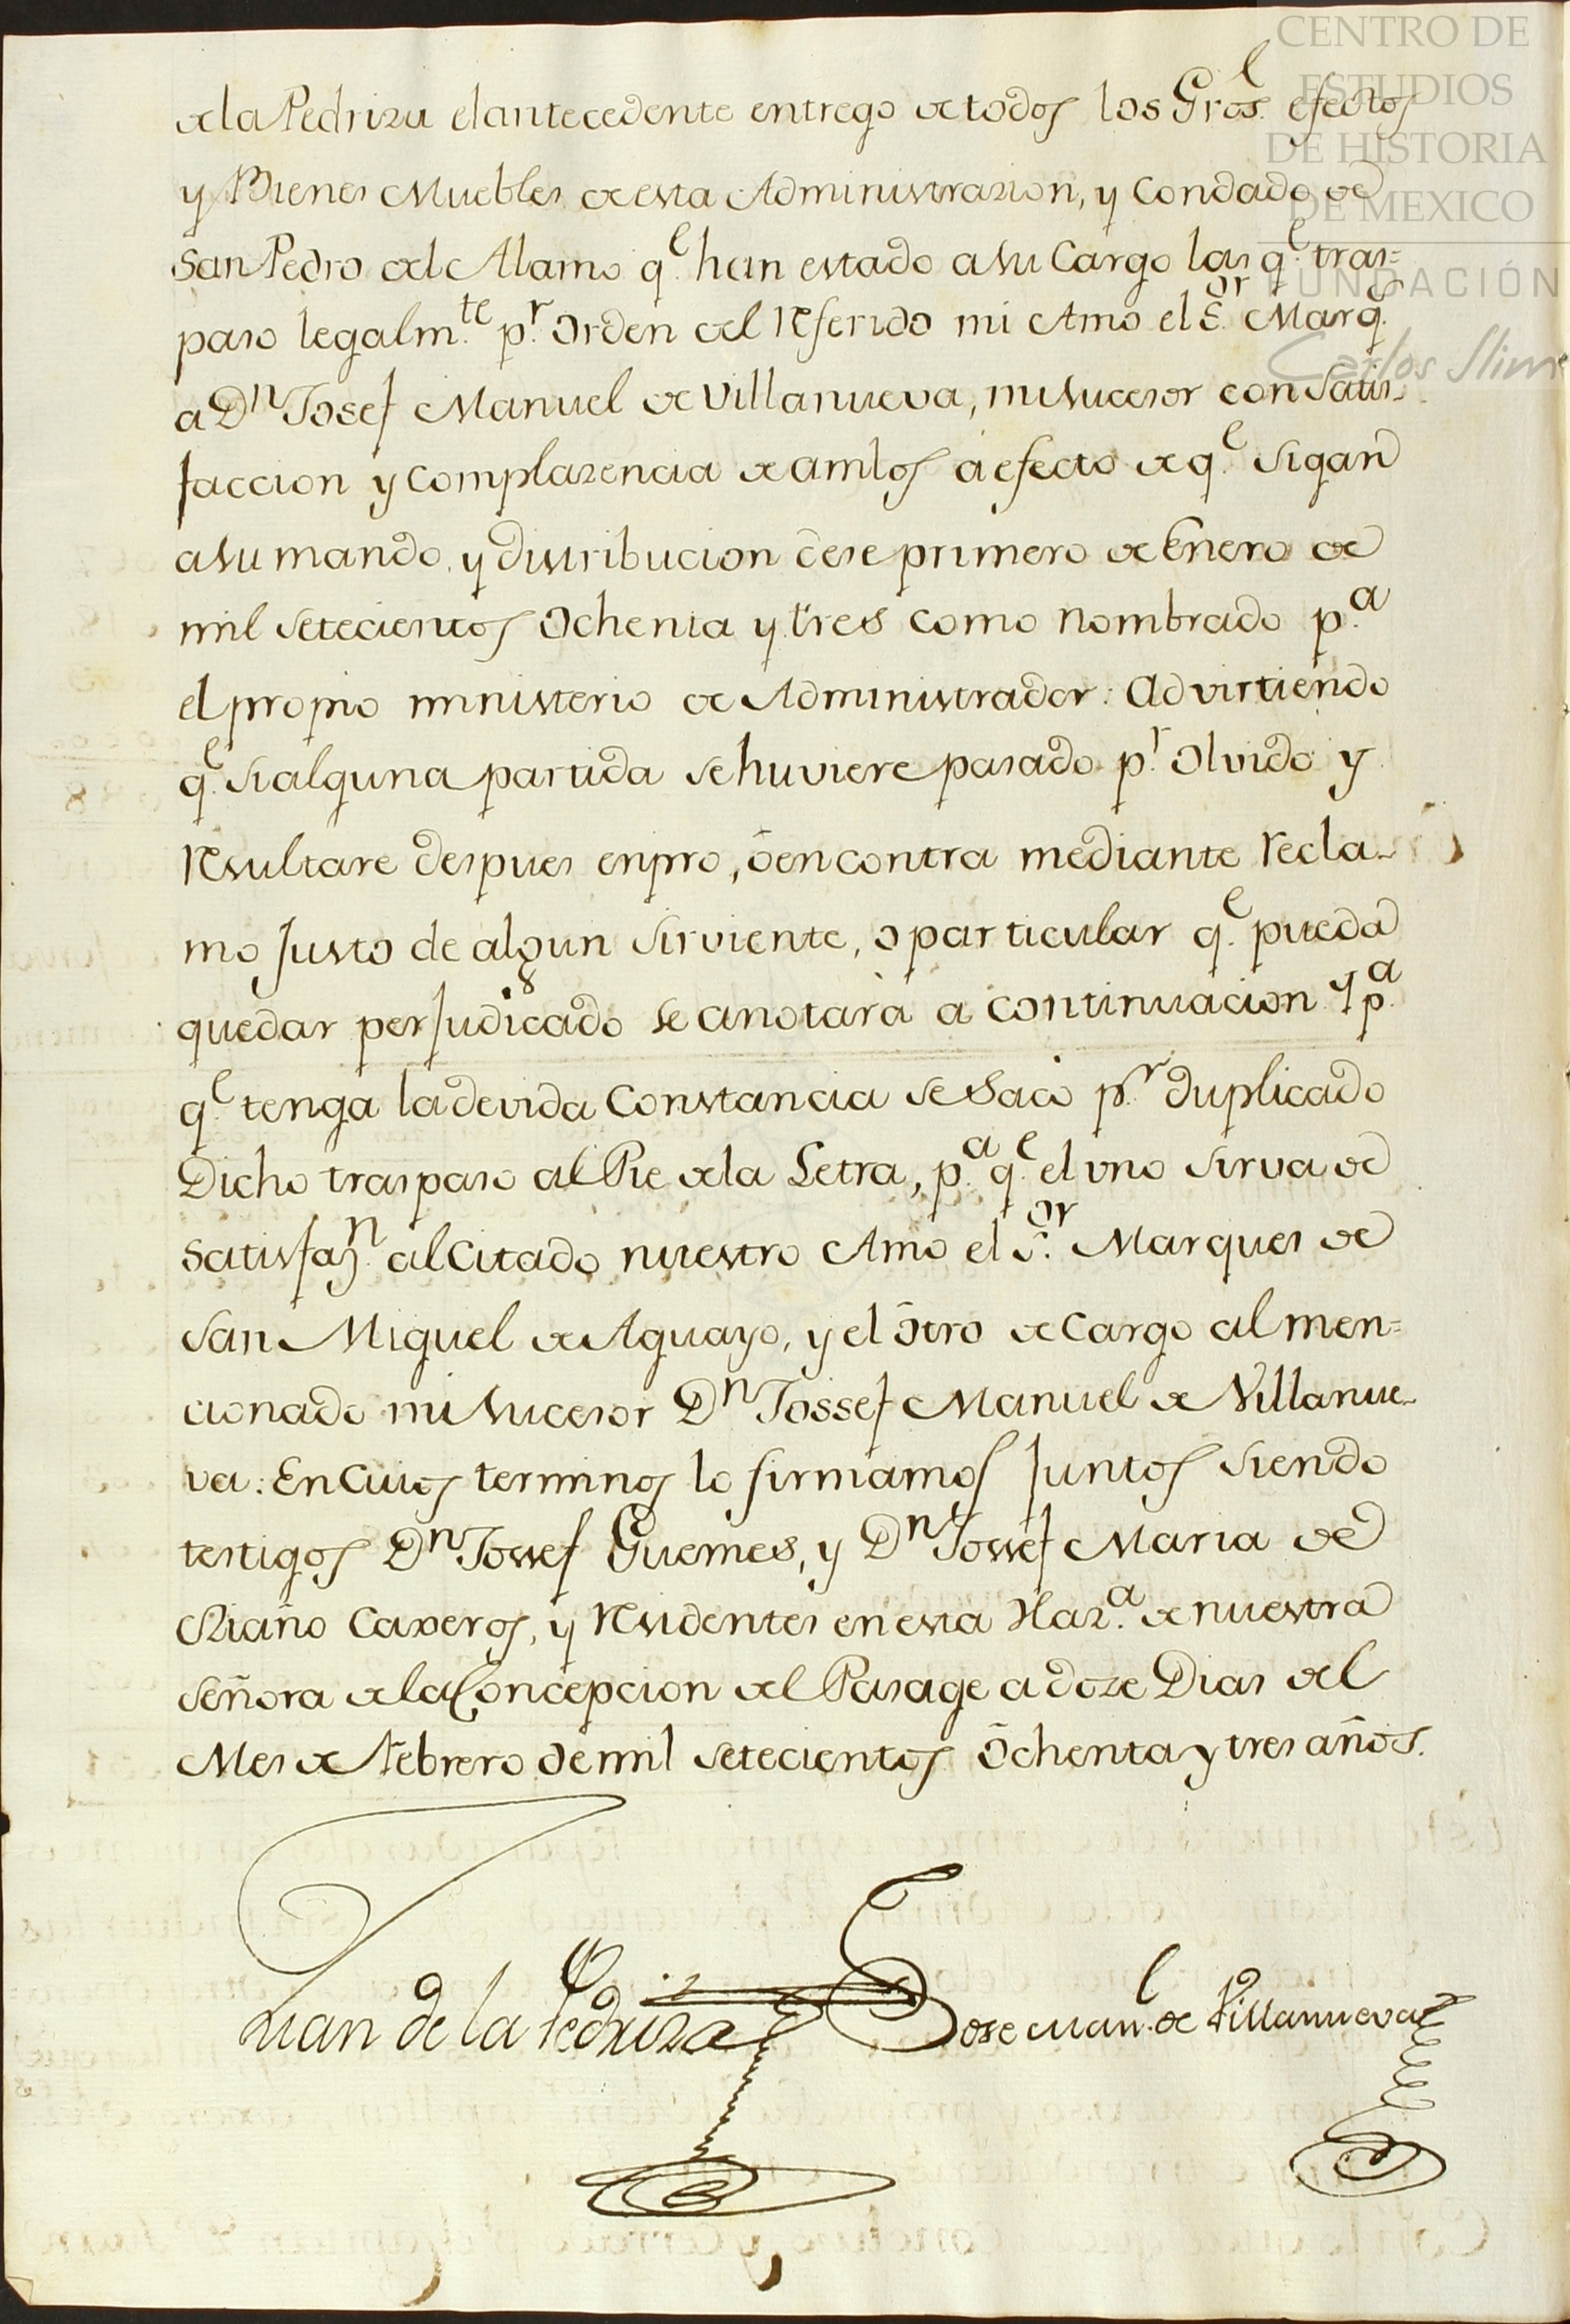 CENTRO DE
ESTUDIOS
DE HISTORIA
DE MEXICO
FUNDACIÓN
Carlos Slim
de la Pedriza el antecedente entrego de todos los Gros. efectos
y Bienes Muebles de esta Administrazion, y Condado de
San Pedro del Alamo q.e han estado a su Cargo las q.e tras=
paso legalm.te p.r orden del referido mi Amo el S.or Marq.s
a Dn Josef Manuel de Villanueva, mi sucesor con satis-
faccion y complazencia de ambos a efecto de q.e sigan
a su mando, y distribucion dese primero de Enero de
mil setecientos ochenta y tres como nombrado p.a
el propio ministerio de Administrador: Advirtiendo
q.e si alguna partida se huviere pasado p.r olvido y
resultare despues en pro, ó en contra mediante recla-
mo justo de algun sirviente, o particular q.e pueda
quedar perjudicado se anotará a continuacion y p.a
q.e tenga la devida Constancia se sacó p.r duplicado
Dicho traspaso al Pie de la Letra, p.a q.e el uno sirva de
satisfaz.n al Citado nuestro Amo el S.or Marques de
San Miguel de Aguayo, y el otro de Cargo al men=
cionado mi sucesor Dn Jossef Manuel de Villanue-
va: En Cuios terminos lo firmamos juntos siendo
testigos Dn Jossef Guemes, y Dn Jossef Maria de
Riaño Caxeros, y residentes en esta Haz.a de nuestra
Señora de la Concepcion del Pasage a doze Dias del
Mes de Febrero de mil setecientos ochenta y tres años.
Juan de la Pedriza
Jose Man.l de Villanueva